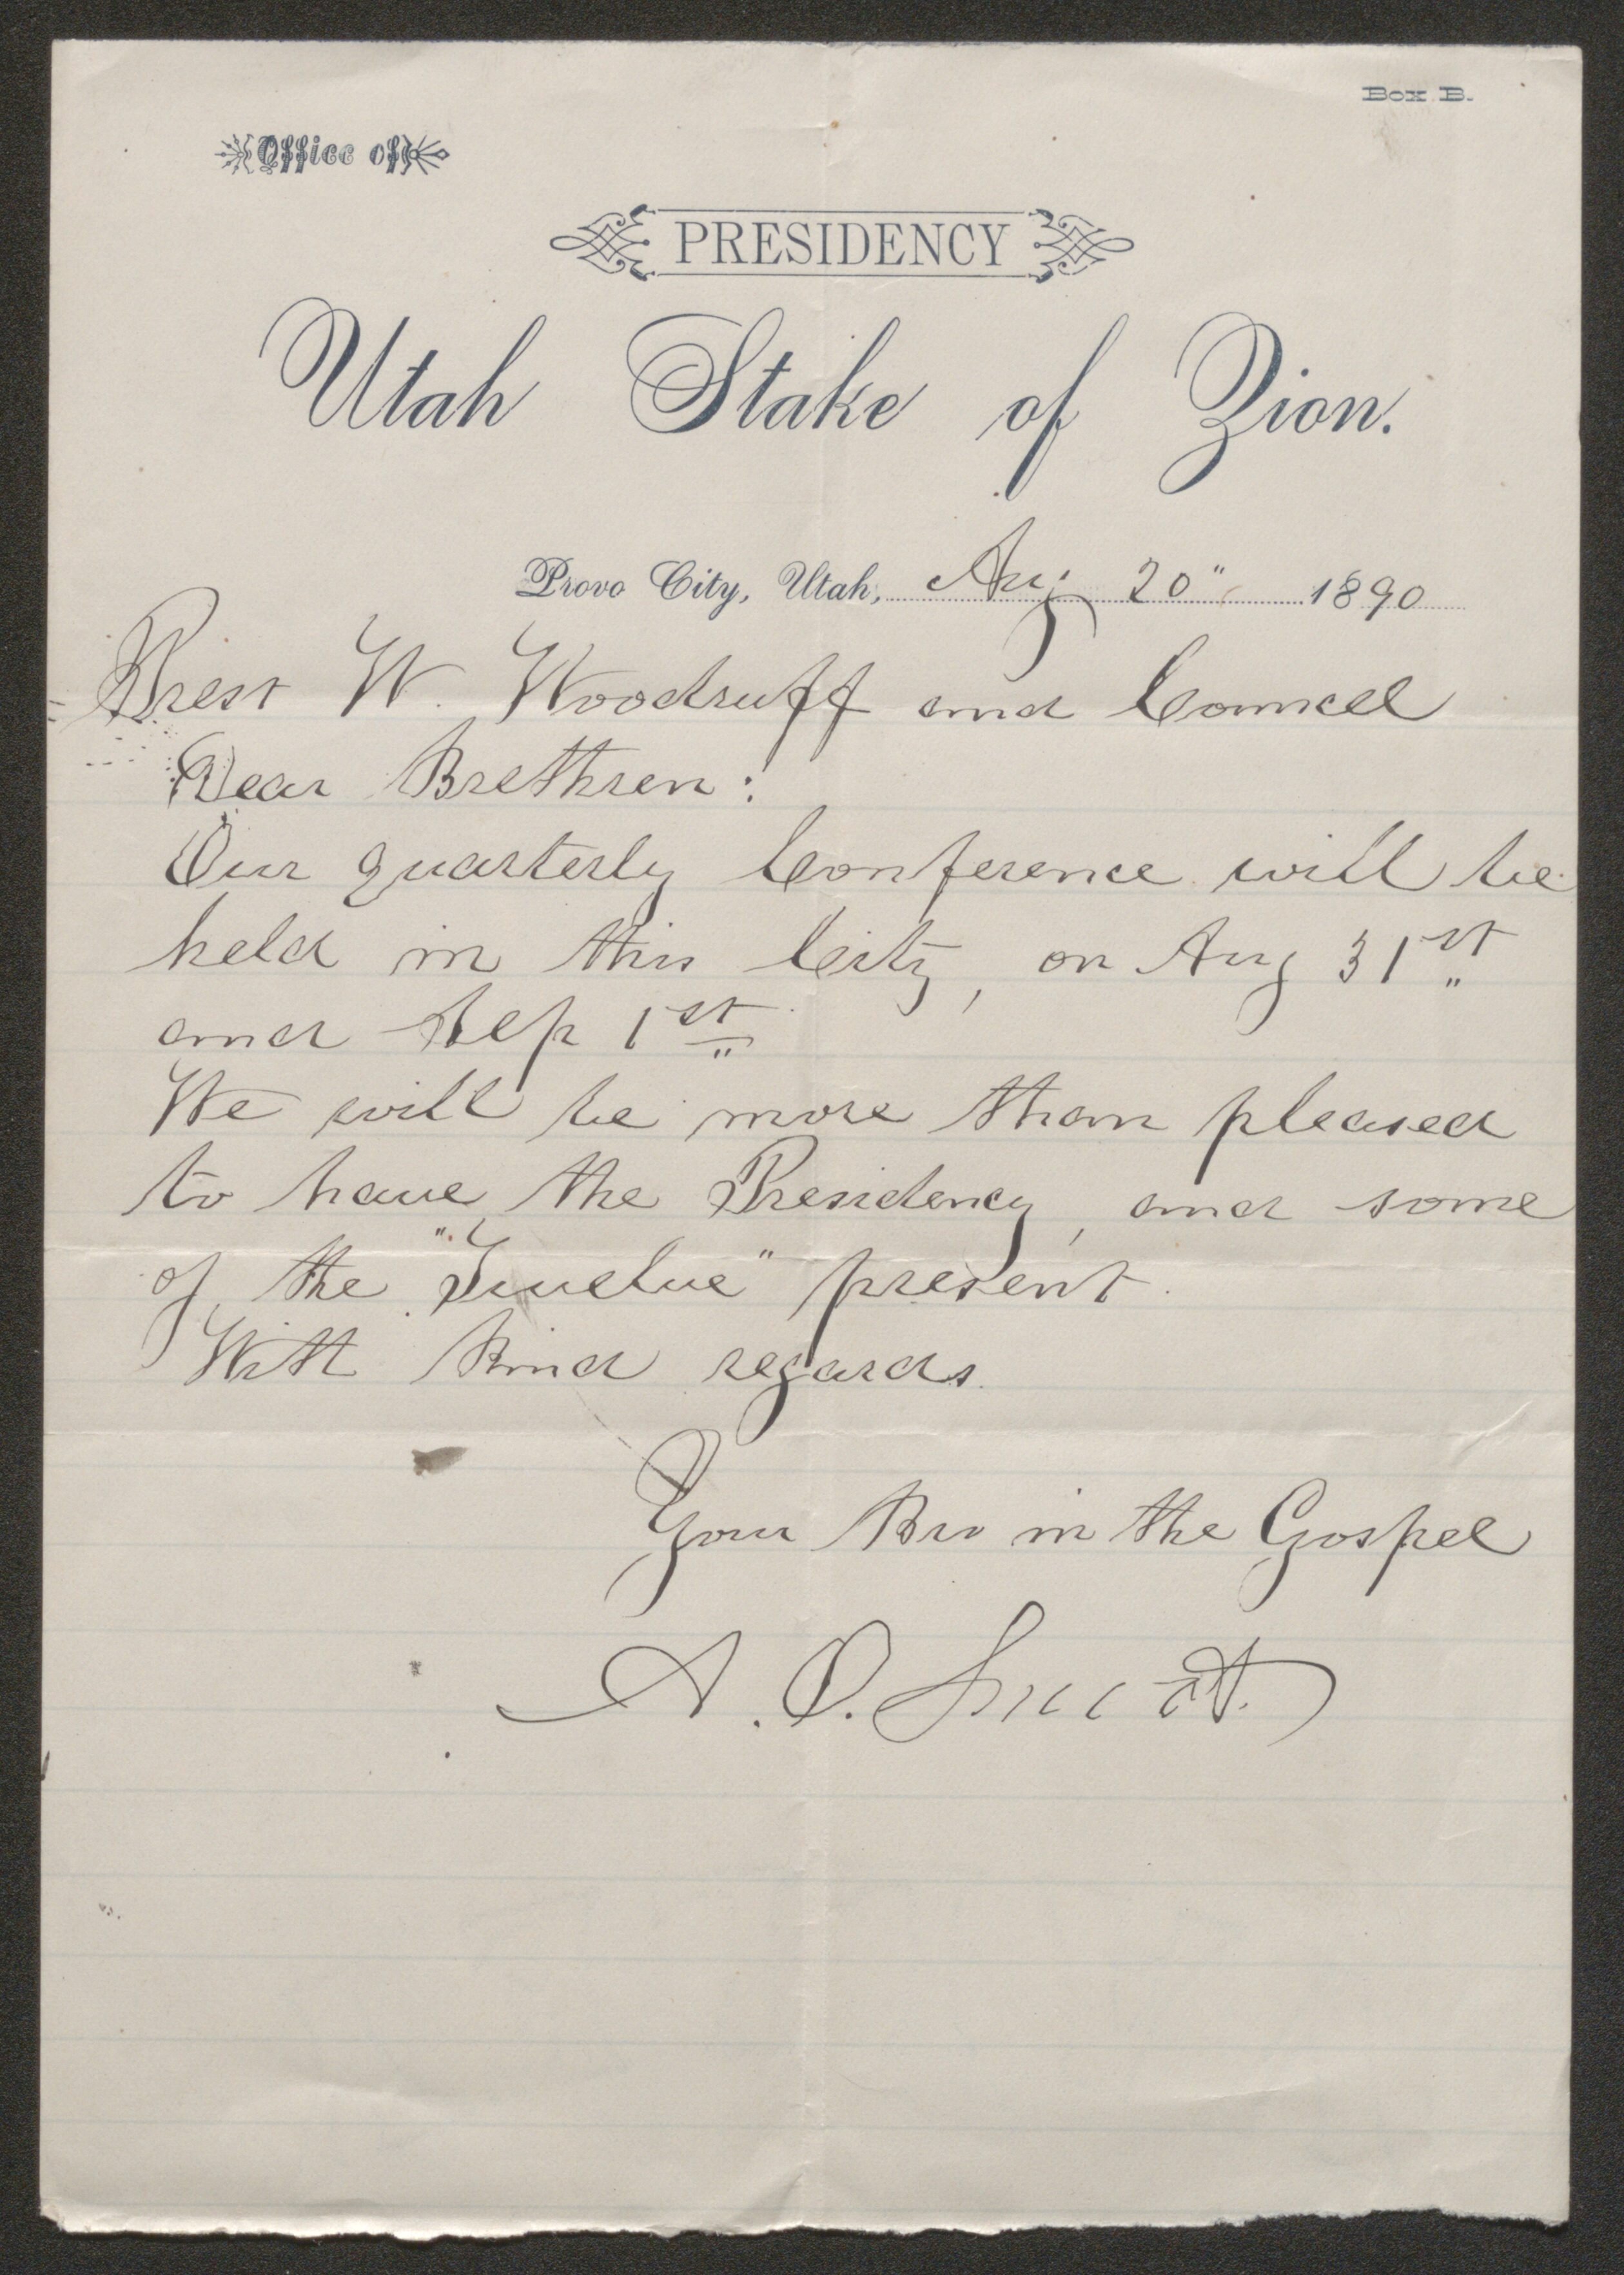 Box B.
Office of
PRESIDENCY
Utah Stake of Zion.
Provo City, Utah, Aug 20" 1890
Prest W. Woodruff and Councel
Dear Brethren:
Our quarterly Conference will be
held in this City, on Aug 31st
and Sep 1st
We will be more than pleased
to have the Presidency, and some
of the "Twelve" present.
With kind regards.
Your Bro in the Gospel
A. O. Smoot.